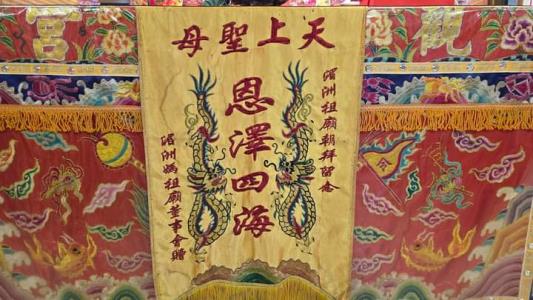 天上聖母
湄洲祖廟朝拜留念
恩澤四海
湄洲媽祖廟董事會贈
宮